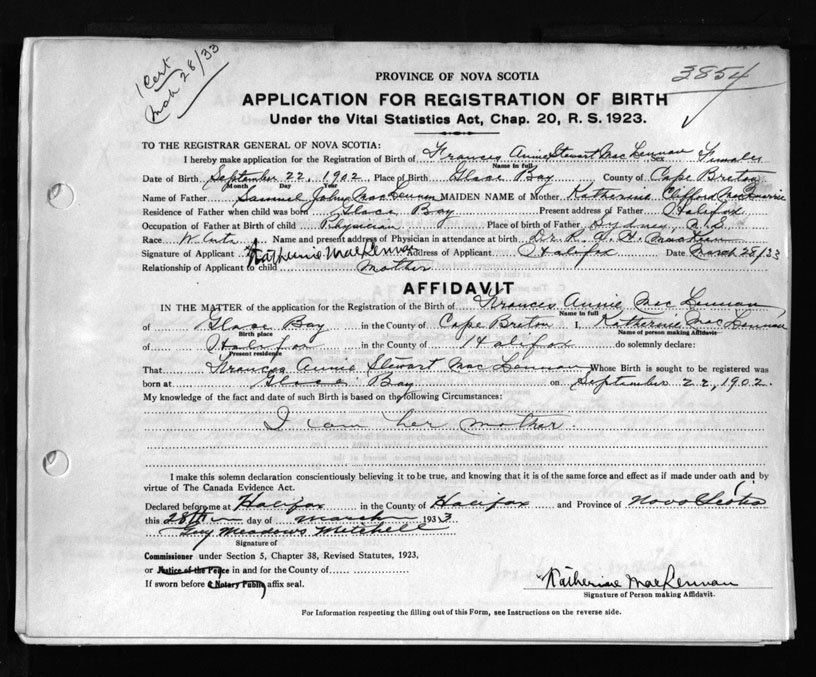 Cert
Mch 28/33
3854
PROVINCE OF NOVA SCOTIA
APPLICATION FOR REGISTRATION OF BIRTH
Under the Vital Statistics Act, Chap. 20, R. S. 1923.
TO THE REGISTRAR GENERAL OF NOVA SCOTIA:
I hereby make application for the Registration of Birth of Frances Annie Stewart MacLennan Sex Female
Name in full
Date of Birth September 22, 1902 Place of Birth Glace Bay County of Cape Breton
Month Day Year
Name of Father Samuel John MacLennan MAIDEN NAME of Mother Katherine Clifford
Residence of Father when child was born Glace Bay Present address of Father Halifax
Occupation of Father at Birth of child Physician Place of birth of Father Sydney, N.S.
Race White Name and present address of Physician in attendance at birth Dr. R. A. H. MacKeen
Signature of Applicant Katherine MacLennan Address of Applicant Halifax Date March 28/33
Relationship of Applicant to child Mother
AFFIDAVIT
IN THE MATTER of the application for the Registration of the Birth of Frances Annie MacLennan
Name in full
of Glace Bay in the County of Cape Breton I, Katherine MacLennan
Birth place Name of person making Affidavit
of Halifax in the County of Halifax do solemnly declare:
Present residence
That Frances Annie Stewart MacLennan Whose Birth is sought to be registered was
born at Glace Bay on September 22, 1902.
My knowledge of the fact and date of such Birth is based on the following Circumstances:
I am her mother.
I make this solemn declaration conscientiously believing it to be true, and knowing that it is of the same force and effect as if made under oath and by
virtue of The Canada Evidence Act.
Declared before me at Halifax in the County of Halifax and Province of Nova Scotia
this 28th day of March 1933
Guy Meadows Mitchell
Signature of
Commissioner under Section 5, Chapter 38, Revised Statutes, 1923,
or Justice of the Peace in and for the County of
If sworn before a Notary Public affix seal.
Katherine MacLennan
Signature of Person making Affidavit.
For Information respecting the filling out of this Form, see Instructions on the reverse side.